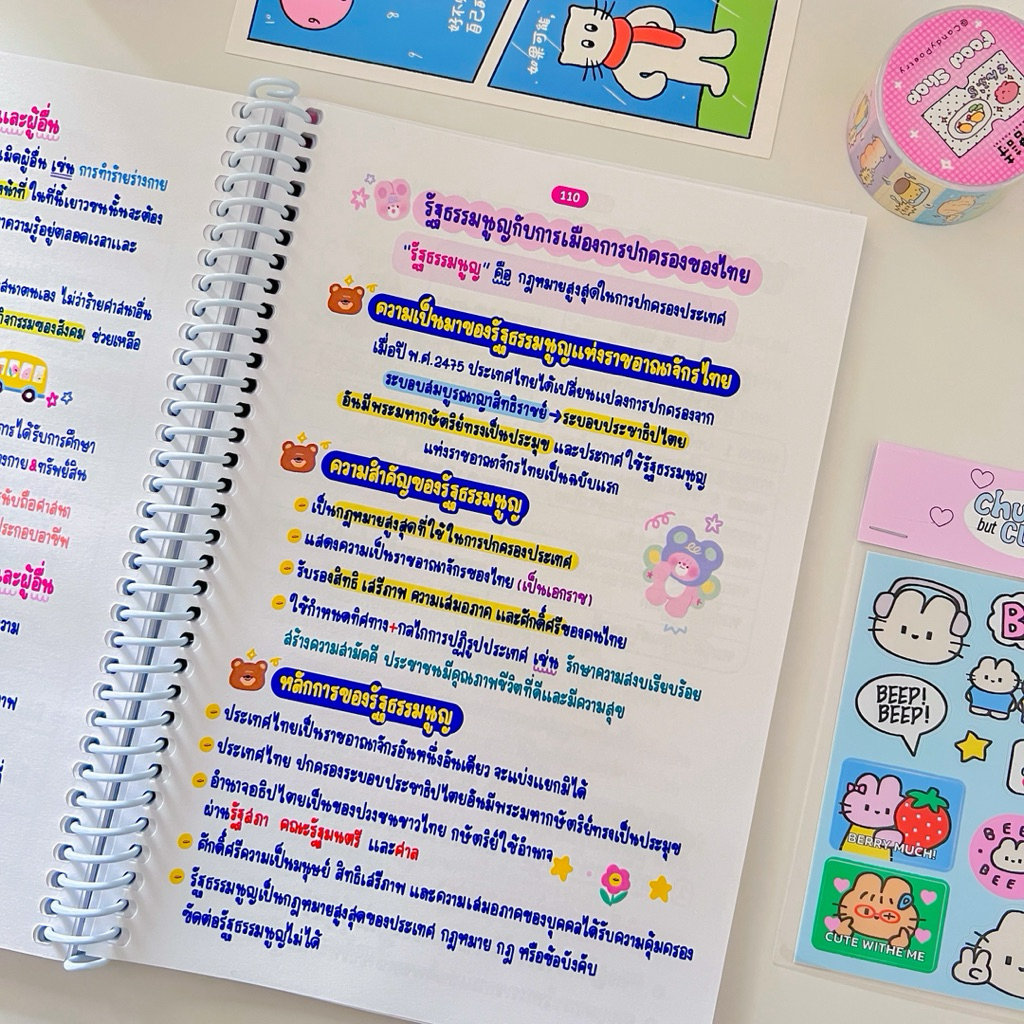 และผู้อื่น
เมิดผู้อื่น เช่น การทำร้ายร่างกาย
น้าที่ ในที่นี้เยาวชนนั้นจะต้อง
าความรู้อยู่ตลอดเวลาและ
สนาตนเอง ไม่ว่าร้ายศาสนาอื่น
กิจกรรมของสังคม ช่วยเหลือ
การได้รับการศึกษา
างกาย&ทรัพย์สิน
นับถือศาสนา
ประกอบอาชีพ
และผู้อื่น
วาม
าพ
110
รัฐธรรมนูญกับการเมืองการปกครองของไทย
"รัฐธรรมนูญ" คือ กฎหมายสูงสุดในการปกครองประเทศ
ความเป็นมาของรัฐธรรมนูญแห่งราชอาณาจักรไทย
เมื่อปี พ.ศ.2475 ประเทศไทยได้เปลี่ยนแปลงการปกครองจาก
ระบอบสมบูรณาญาสิทธิราชย์→ระบอบประชาธิปไตย
อันมีพระมหากษัตริย์ทรงเป็นประมุข และประกาศใช้รัฐธรรมนูญ
แห่งราชอาณาจักรไทยเป็นฉบับแรก
ความสำคัญของรัฐธรรมนูญ
เป็นกฎหมายสูงสุดที่ใช้ในการปกครองประเทศ
แสดงความเป็นราชอาณาจักรของไทย (เป็นเอกราช)
รับรองสิทธิ เสรีภาพ ความเสมอภาค และศักดิ์ศรีของคนไทย
ใช้กำหนดทิศทาง+กลไกการปฏิรูปประเทศ เช่น รักษาความสงบเรียบร้อย
สร้างความสามัคคี ประชาชนมีคุณภาพชีวิตที่ดีและมีความสุข
หลักการของรัฐธรรมนูญ
ประเทศไทยเป็นราชอาณาจักรอันหนึ่งอันเดียว จะแบ่งแยกมิได้
ประเทศไทย ปกครองระบอบประชาธิปไตยอันมีพระมหากษัตริย์ทรงเป็นประมุข
อำนาจอธิปไตยเป็นของปวงชนชาวไทย กษัตริย์ใช้อำนาจ
ผ่านรัฐสภา คณะรัฐมนตรี และศาล
ศักดิ์ศรีความเป็นมนุษย์ สิทธิเสรีภาพ และความเสมอภาคของบุคคลได้รับความคุ้มครอง
รัฐธรรมนูญเป็นกฎหมายสูงสุดของประเทศ กฎหมาย กฎ หรือข้อบังคับ
ขัดต่อรัฐธรรมนูญไม่ได้
如果可能,
@CandyPoetry
FOOD Shop
chu
but CU
BEEP!
BEEP!
BERRY MUCH!
CUTE WITHE ME
BEE
BEE